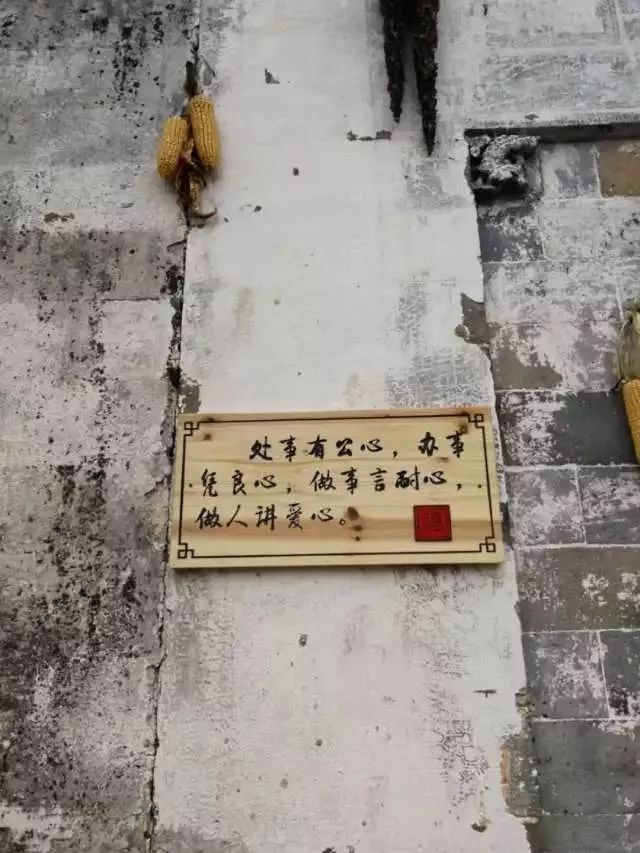 处事有公心，办事
凭良心，做事言耐心，
做人讲爱心。